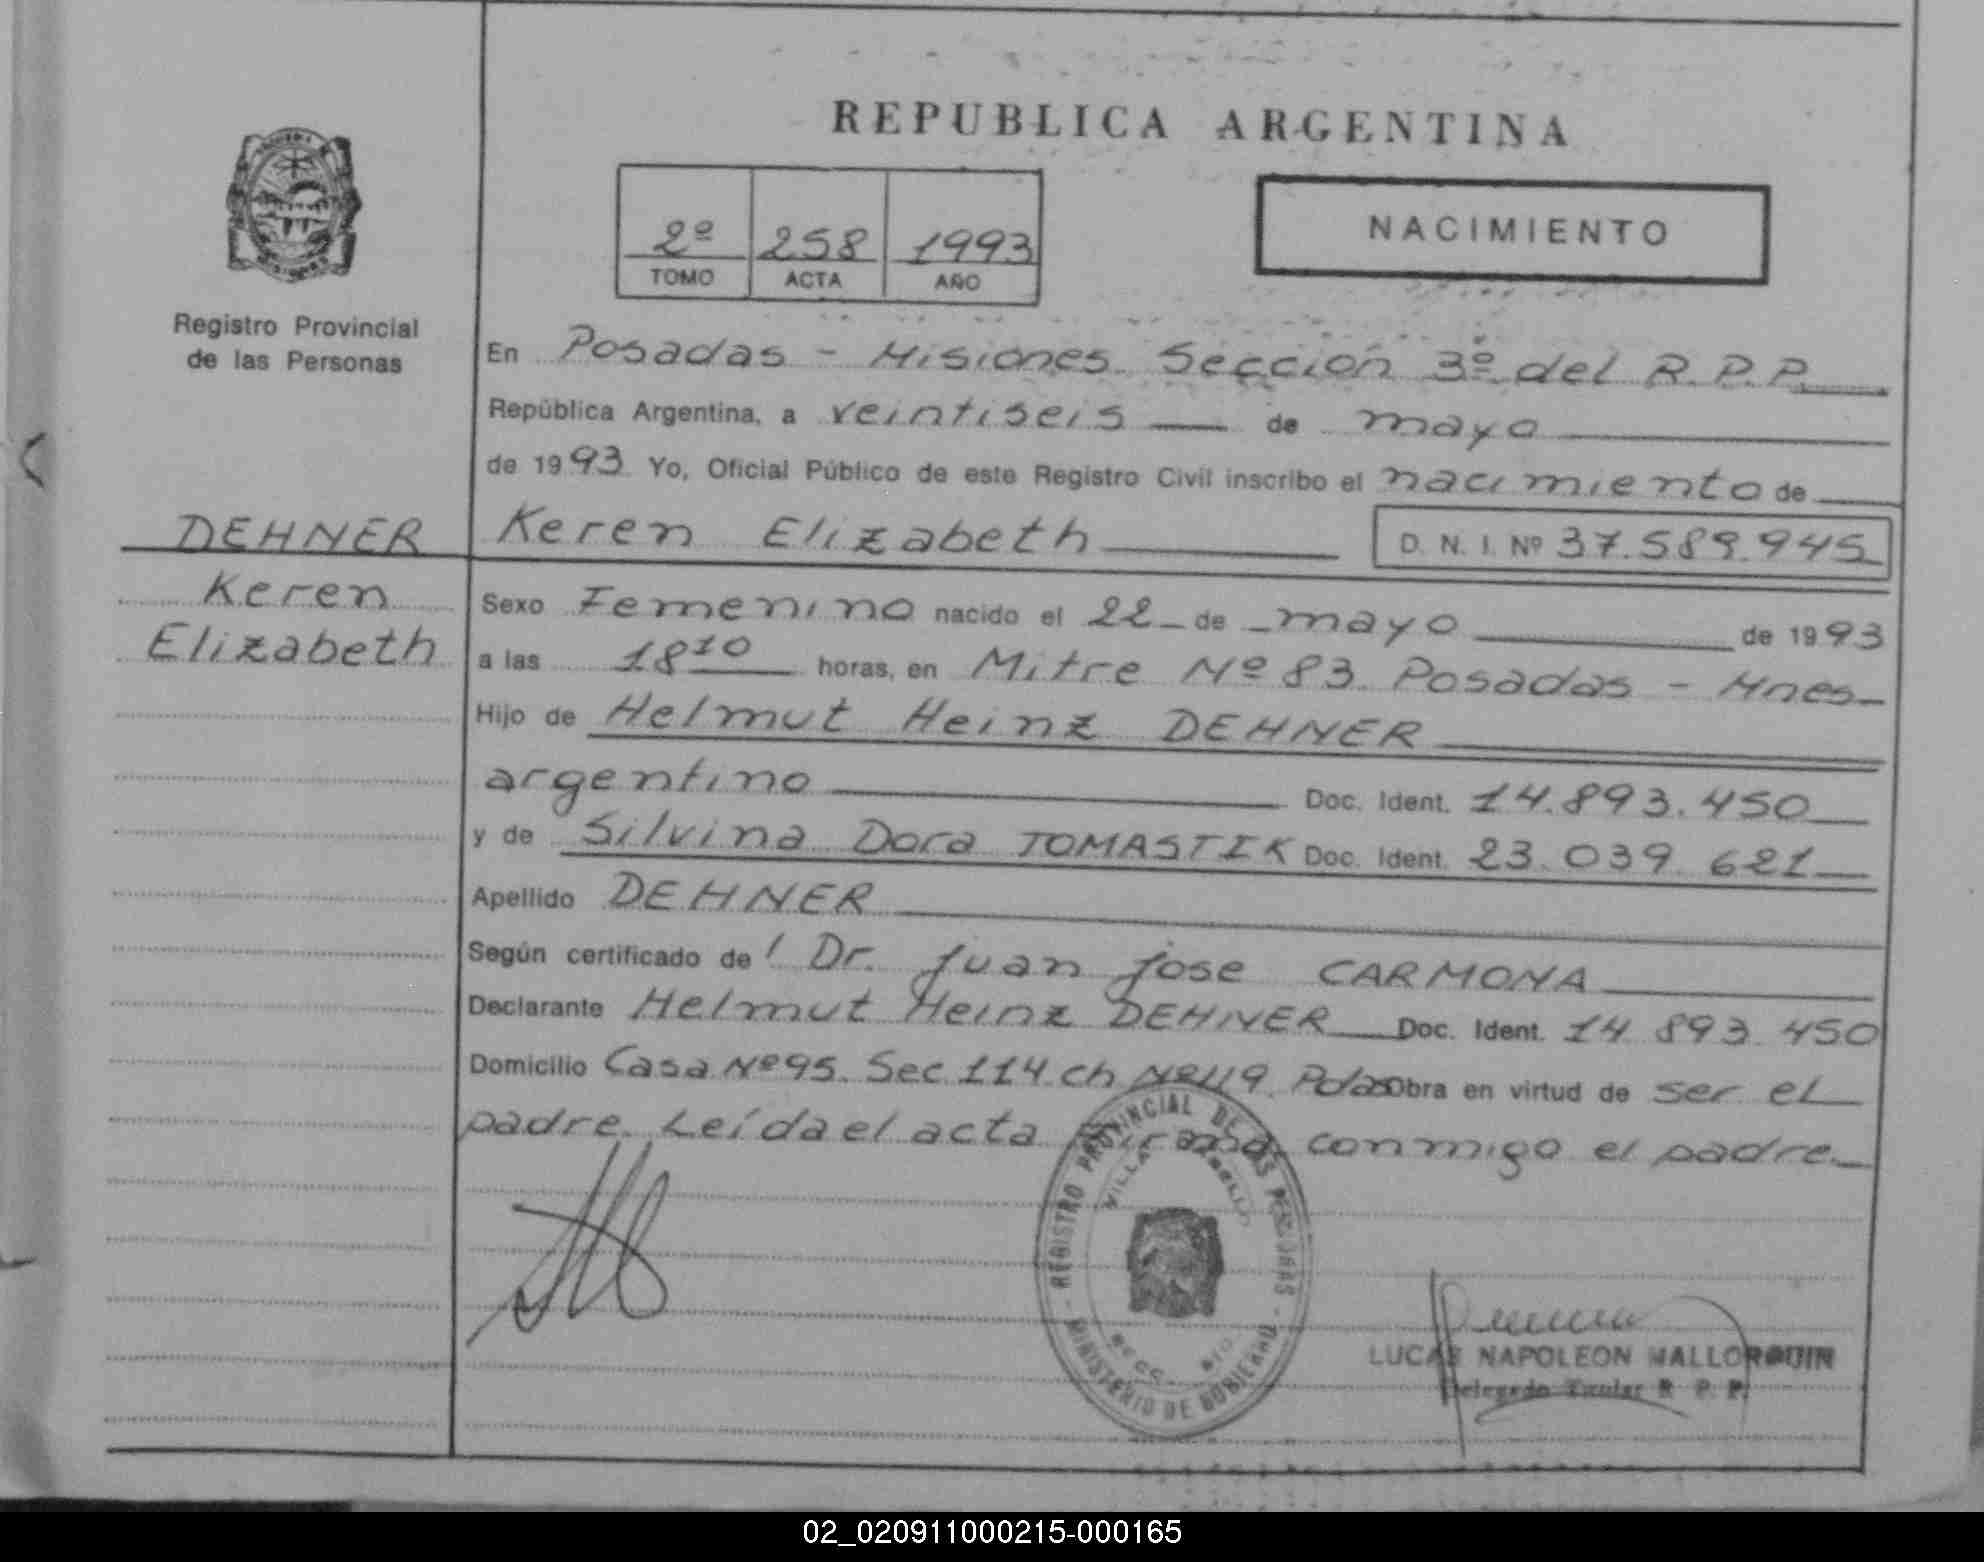 REPUBLICA ARGENTINA
2º 258 1993
TOMO ACTA AÑO
NACIMIENTO
Registro Provincial
de las Personas
En Posadas - Misiones. Sección 3º del R.P.P.
República Argentina, a veintiseis de mayo
de 1993 Yo, Oficial Público de este Registro Civil inscribo el nacimiento de
DEHNER
Keren
Elizabeth
Keren Elizabeth D. N. I. Nº 37.589.945
Sexo Femenino nacido el 22 de mayo de 1993
a las 18 10 horas, en Mitre Nº 83. Posadas - Mnes
Hijo de Helmut Heinz DEHNER
argentino Doc. Ident. 14.893.450
y de Silvina Dora TOMASTIK Doc. Ident. 23.039.621
Apellido DEHNER
Según certificado de l Dr. Juan Jose CARMONA
Declarante Helmut Heinz DEHNER Doc. Ident. 14.893.450
Domicilio Casa Nº 95. Sec 114 ch Nº 119. Pdas Obra en virtud de ser el
padre. Leída el acta firma conmigo el padre.
REGISTRO PROVINCIAL DE LAS PERSONAS
VILLA
MINISTERIO DE GOBIERNO
LUCAS NAPOLEON MALLORQUIN
Delegado Titular R. P. P.
02_020911000215-000165